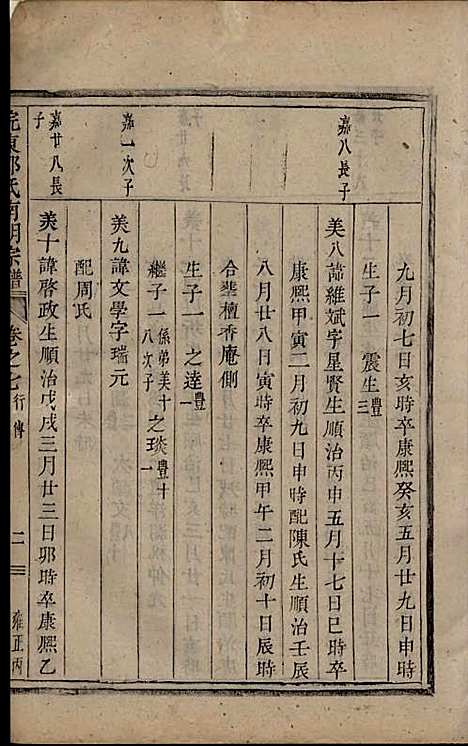 九月初七日亥時卒康熙癸亥五月廿九日申時
生子一 震生 豐三
嘉八長子
美八諱維斌字星賢生順治丙申五月十七日巳時卒
康熙甲寅二月初九日申時配陳氏生順治壬辰
八月廿八日寅時卒康熙甲午二月初十日辰時
合塟檀香庵側
生子一 之逵 豐一
嘉一次子
美九諱文學字瑞元
繼子一 係弟美十八次子 之琰 豐十一
嘉廿八長子
美十諱啓政生順治戊戌三月廿三日卯時卒康熙乙
配周氏
皖東 氏南明宗譜 卷之七 行傳 二 雍正丙